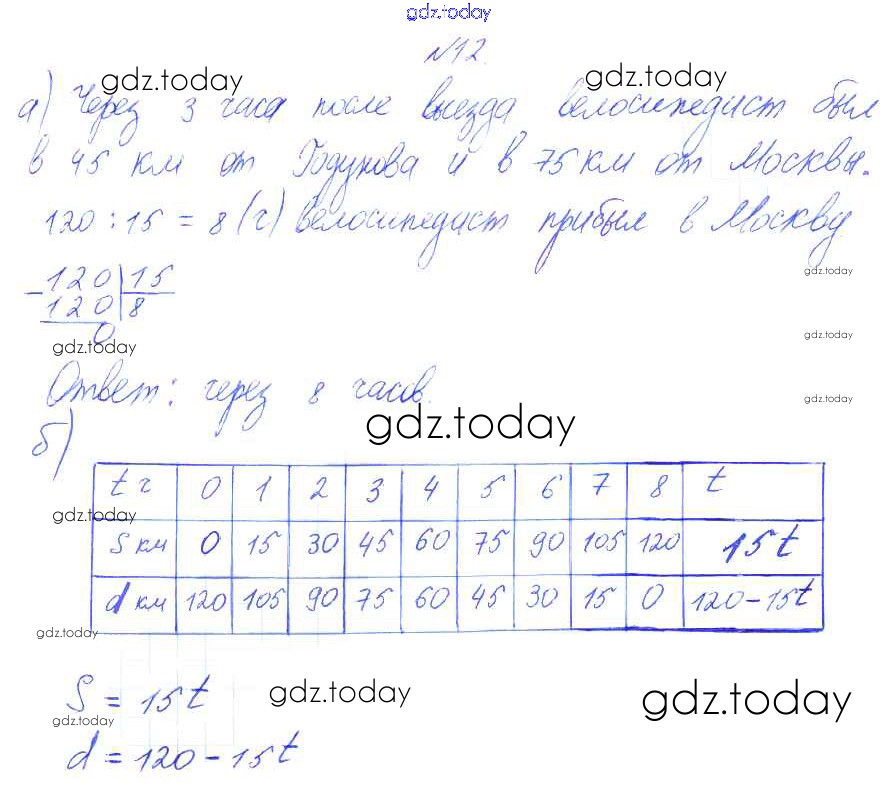 gdz.today
№12.
gdz.today gdz.today
а) Через 3 часа после выезда велосипедист был
в 45 км от Годунова и в 75 км от Москвы.
120 : 15 = 8 (ч) велосипедист прибыл в Москву
gdz.today
- 120 | 15
120 | 8
0
gdz.today
gdz.today
Ответ: через 8 часов.
gdz.today
gdz.today
б)
t ч 0 1 2 3 4 5 6 7 8 t
gdz.today
S км 0 15 30 45 60 75 90 105 120 15t
d км 120 105 90 75 60 45 30 15 0 120-15t
gdz.today
S = 15t
gdz.today gdz.today
gdz.today
d = 120 - 15t